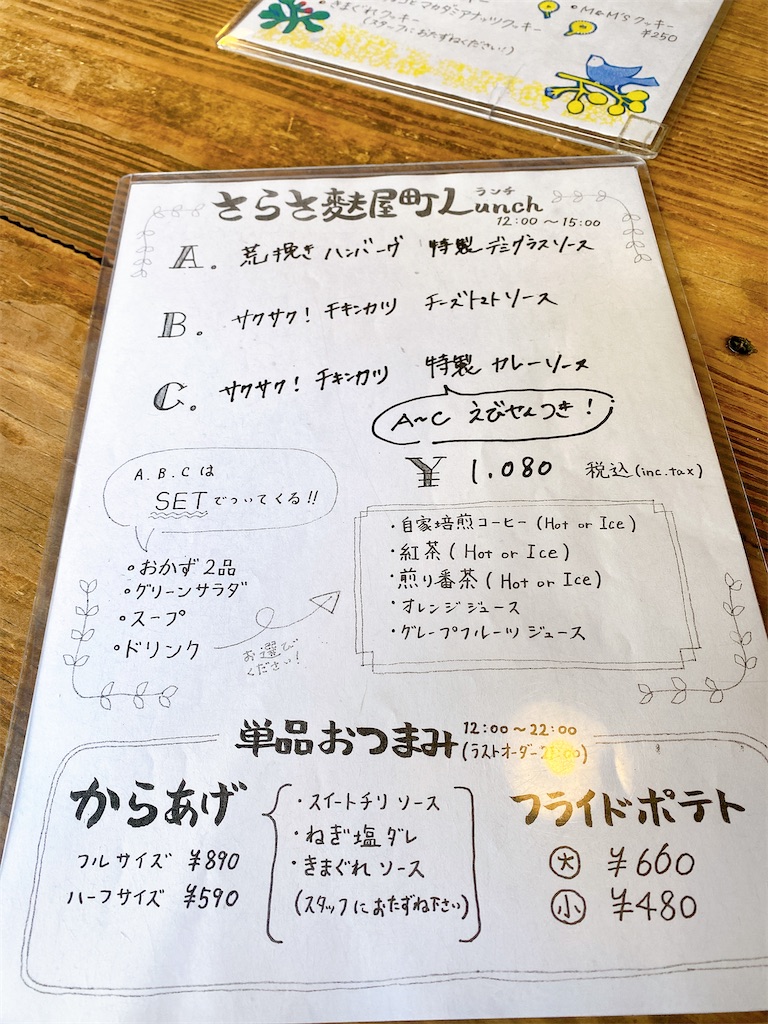 マカダミアナッツクッキー
きまぐれクッキー
(スタッフにおたずねください!)
・M&M'S クッキー
¥250
ランチ
さらさ麩屋町Lunch
12:00〜15:00
A. 荒挽きハンバーグ 特製デミグラスソース
B. サクサク!チキンカツ チーズトマトソース
C. サクサク!チキンカツ 特製カレーソース
A〜C えびせんつき!
¥ 1.080 税込(inc.tax)
A.B.Cは
SETでついてくる!!
・おかず2品
・グリーンサラダ
・スープ
・ドリンク
お選び
ください!
・自家焙煎コーヒー(Hot or Ice)
・紅茶(Hot or Ice)
・煎り番茶(Hot or Ice)
・オレンジジュース
・グレープフルーツジュース
単品おつまみ
12:00〜22:00
(ラストオーダー21:00)
からあげ
フルサイズ ¥890
ハーフサイズ ¥590
・スイートチリソース
・ねぎ塩ダレ
・きまぐれソース
(スタッフにおたずね下さい)
フライドポテト
大 ¥660
小 ¥480